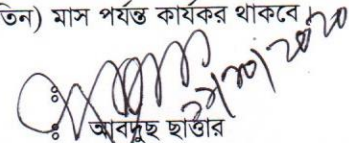 তিন) মাস পর্যন্ত কার্যকর থাকবে।
আবদুছ ছাত্তার